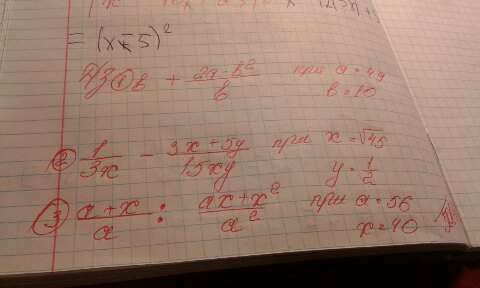 = (x-5)²
Д/з ① b + (2a-b²)/b при a = 49
b = 10
② 1/3x − (3x+5y)/15xy при x = √45
y = 1/2
③ (a+x)/a : (ax+x²)/a² при a = 56
x = 40